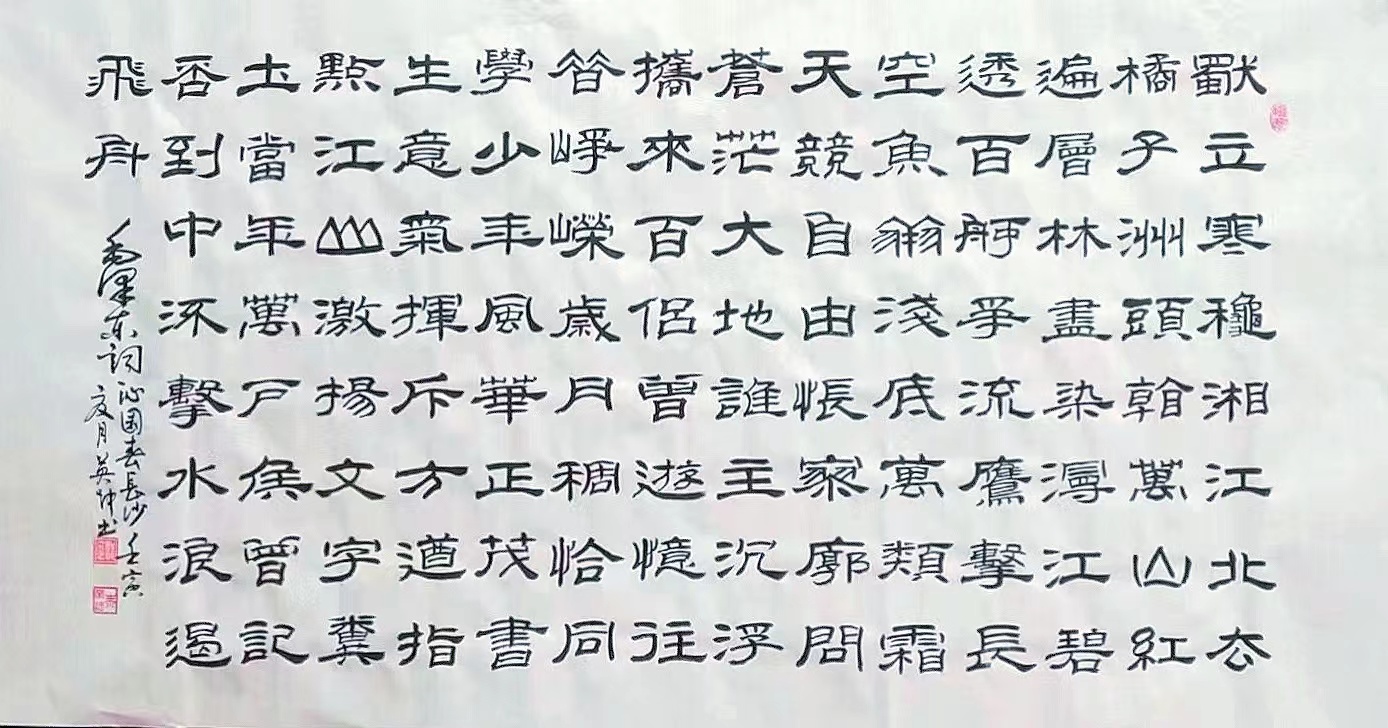 獨立寒穐湘江北去
橘子洲頭看萬山紅
遍層林盡染漫江碧
透百舸爭流鷹擊長
空魚翔淺底萬類霜
天競自由悵寥廓問
蒼茫大地誰主沉浮
攜來百侶曾遊憶往
昔崢嶸歲月稠恰同
學少年風華正茂書
生意氣揮斥方遒指
點江山激揚文字糞
土當年萬戶侯曾記
否到中流擊水浪遏
飛舟
毛澤东詞沁園春長沙壬寅
夏月英坤书